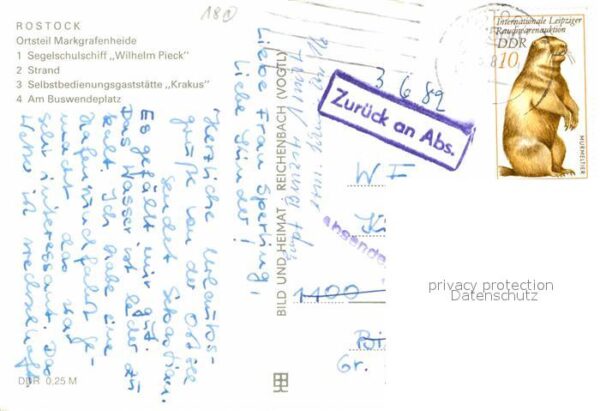 ROSTOCK
Ortsteil Markgrafenheide
1 Segelschulschiff „Wilhelm Pieck"
2 Strand
3 Selbstbedienungsgaststätte „Krakus"
4 Am Buswendeplatz
18
Liebe Frau Sperling,
liebe Kinder!
Herzliche Urlaubs-
grüße von der Ostsee
sendet Sebastian.
Es gefällt mir gut.
Das Wasser ist leider zu
kalt. Ich habe eine
Hafenrundfahrt ge-
macht das war
sehr interessant. Das
Wetter ist wechselhaft.
DDR 0,25 M
BILD UND HEIMAT REICHENBACH (VOGTL)
3 6 82
Zurück an Abs.
W F
1100
Gr.
Internationale Leipziger
Rauchwarenauktion
DDR
10
MURMELTIER
privacy protection
Datenschutz